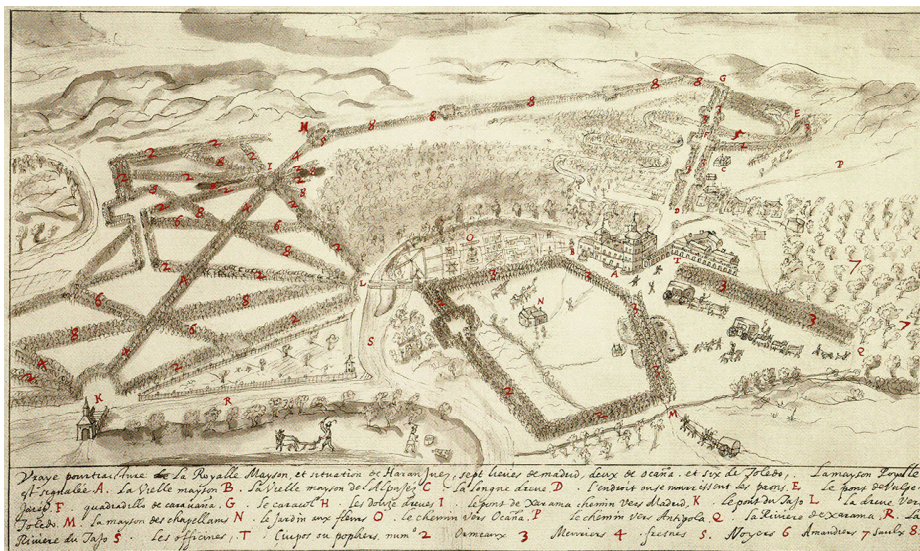 M 8 8 8 8 8 8 G
2 2 2 8 I E
2 8 6 6 8 2 F C P
A 2 2 O B A T D 7
6 6 L 3 3 N 3 3 7
8 2 S Q
2 K R 2 2 M
Vraye pourtraicture de La Royalle Mayson, et situation de Haran Juez, sept lieues de madrid, deux de ocaña. et six de Toledo, La mayson Royalle
est signalée A. La vielle mayson B. La vielle mayson de Alpajes C La longue dreue D. L'endroit ou se nourrissent les paons, E Le pons de
F quadrillo de caravana. G Le caracol H Les douze dreues I le pont de Xarama chemin vers Madrid, K Le pont du Tajo L la dreue vers
Toledo. M. La mayson des chapellains N. le Jardin aux fleurs O. le chemin vers Ocaña, P le chemin vers Q La Riviere de Xarama, R. La
Riviere du Tajo S. Les officines, T num° 2 Ormeaux 3 Meuriers 4 fresnes 5. Noyers 6 Amandiers 7 Saulx 8